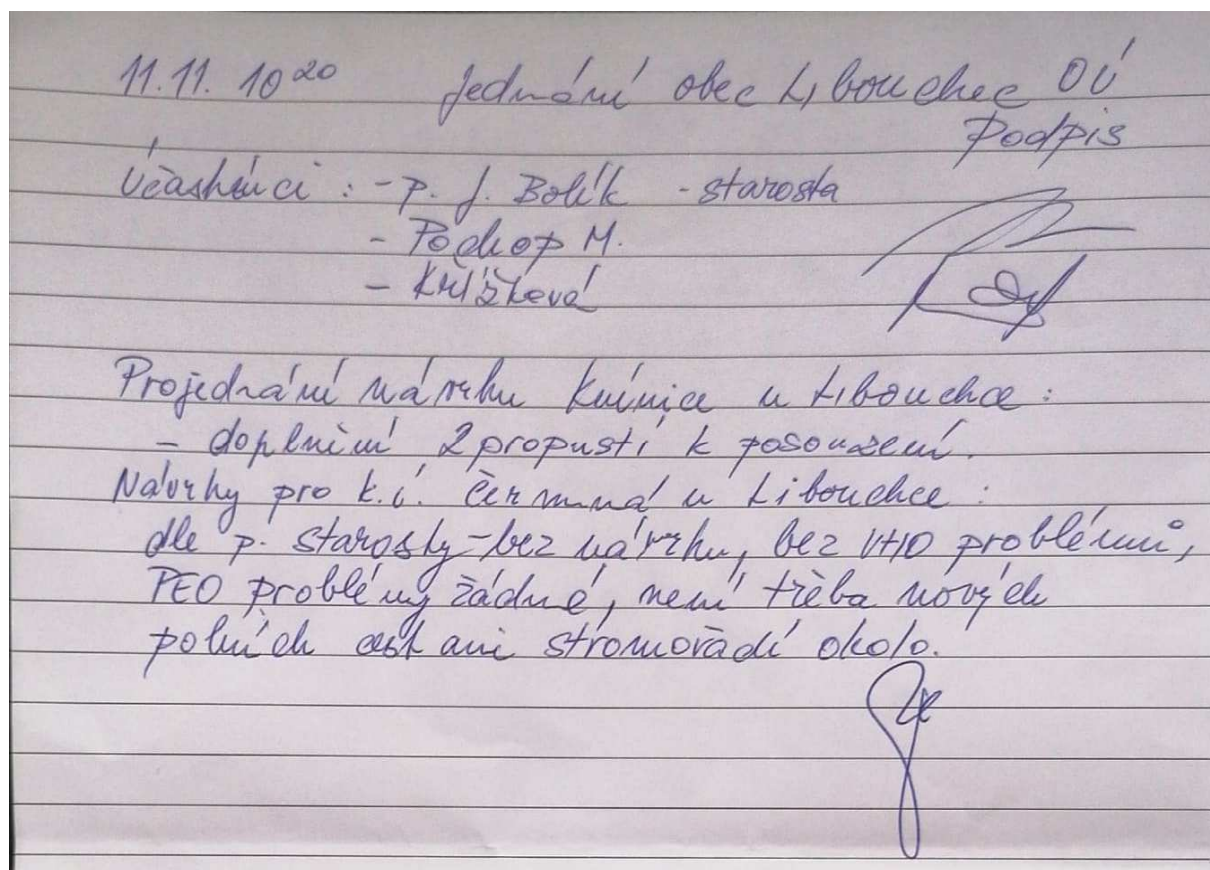 11.11. 10 20 Jednání obec Libouchec OÚ
Podpis
Účastníci : - p. J. Bolík - starosta
- Pochop M.
- Křížková
Projednání návrhu Knínice u Libouchce :
- doplnění 2 propustí k posouzení.
Návrhy pro k.ú. Čermná u Libouchce :
dle p. starosty - bez návrhu, bez VHO problémů,
PEO problémy žádné, není třeba nových
polních cest ani stromořadí okolo.